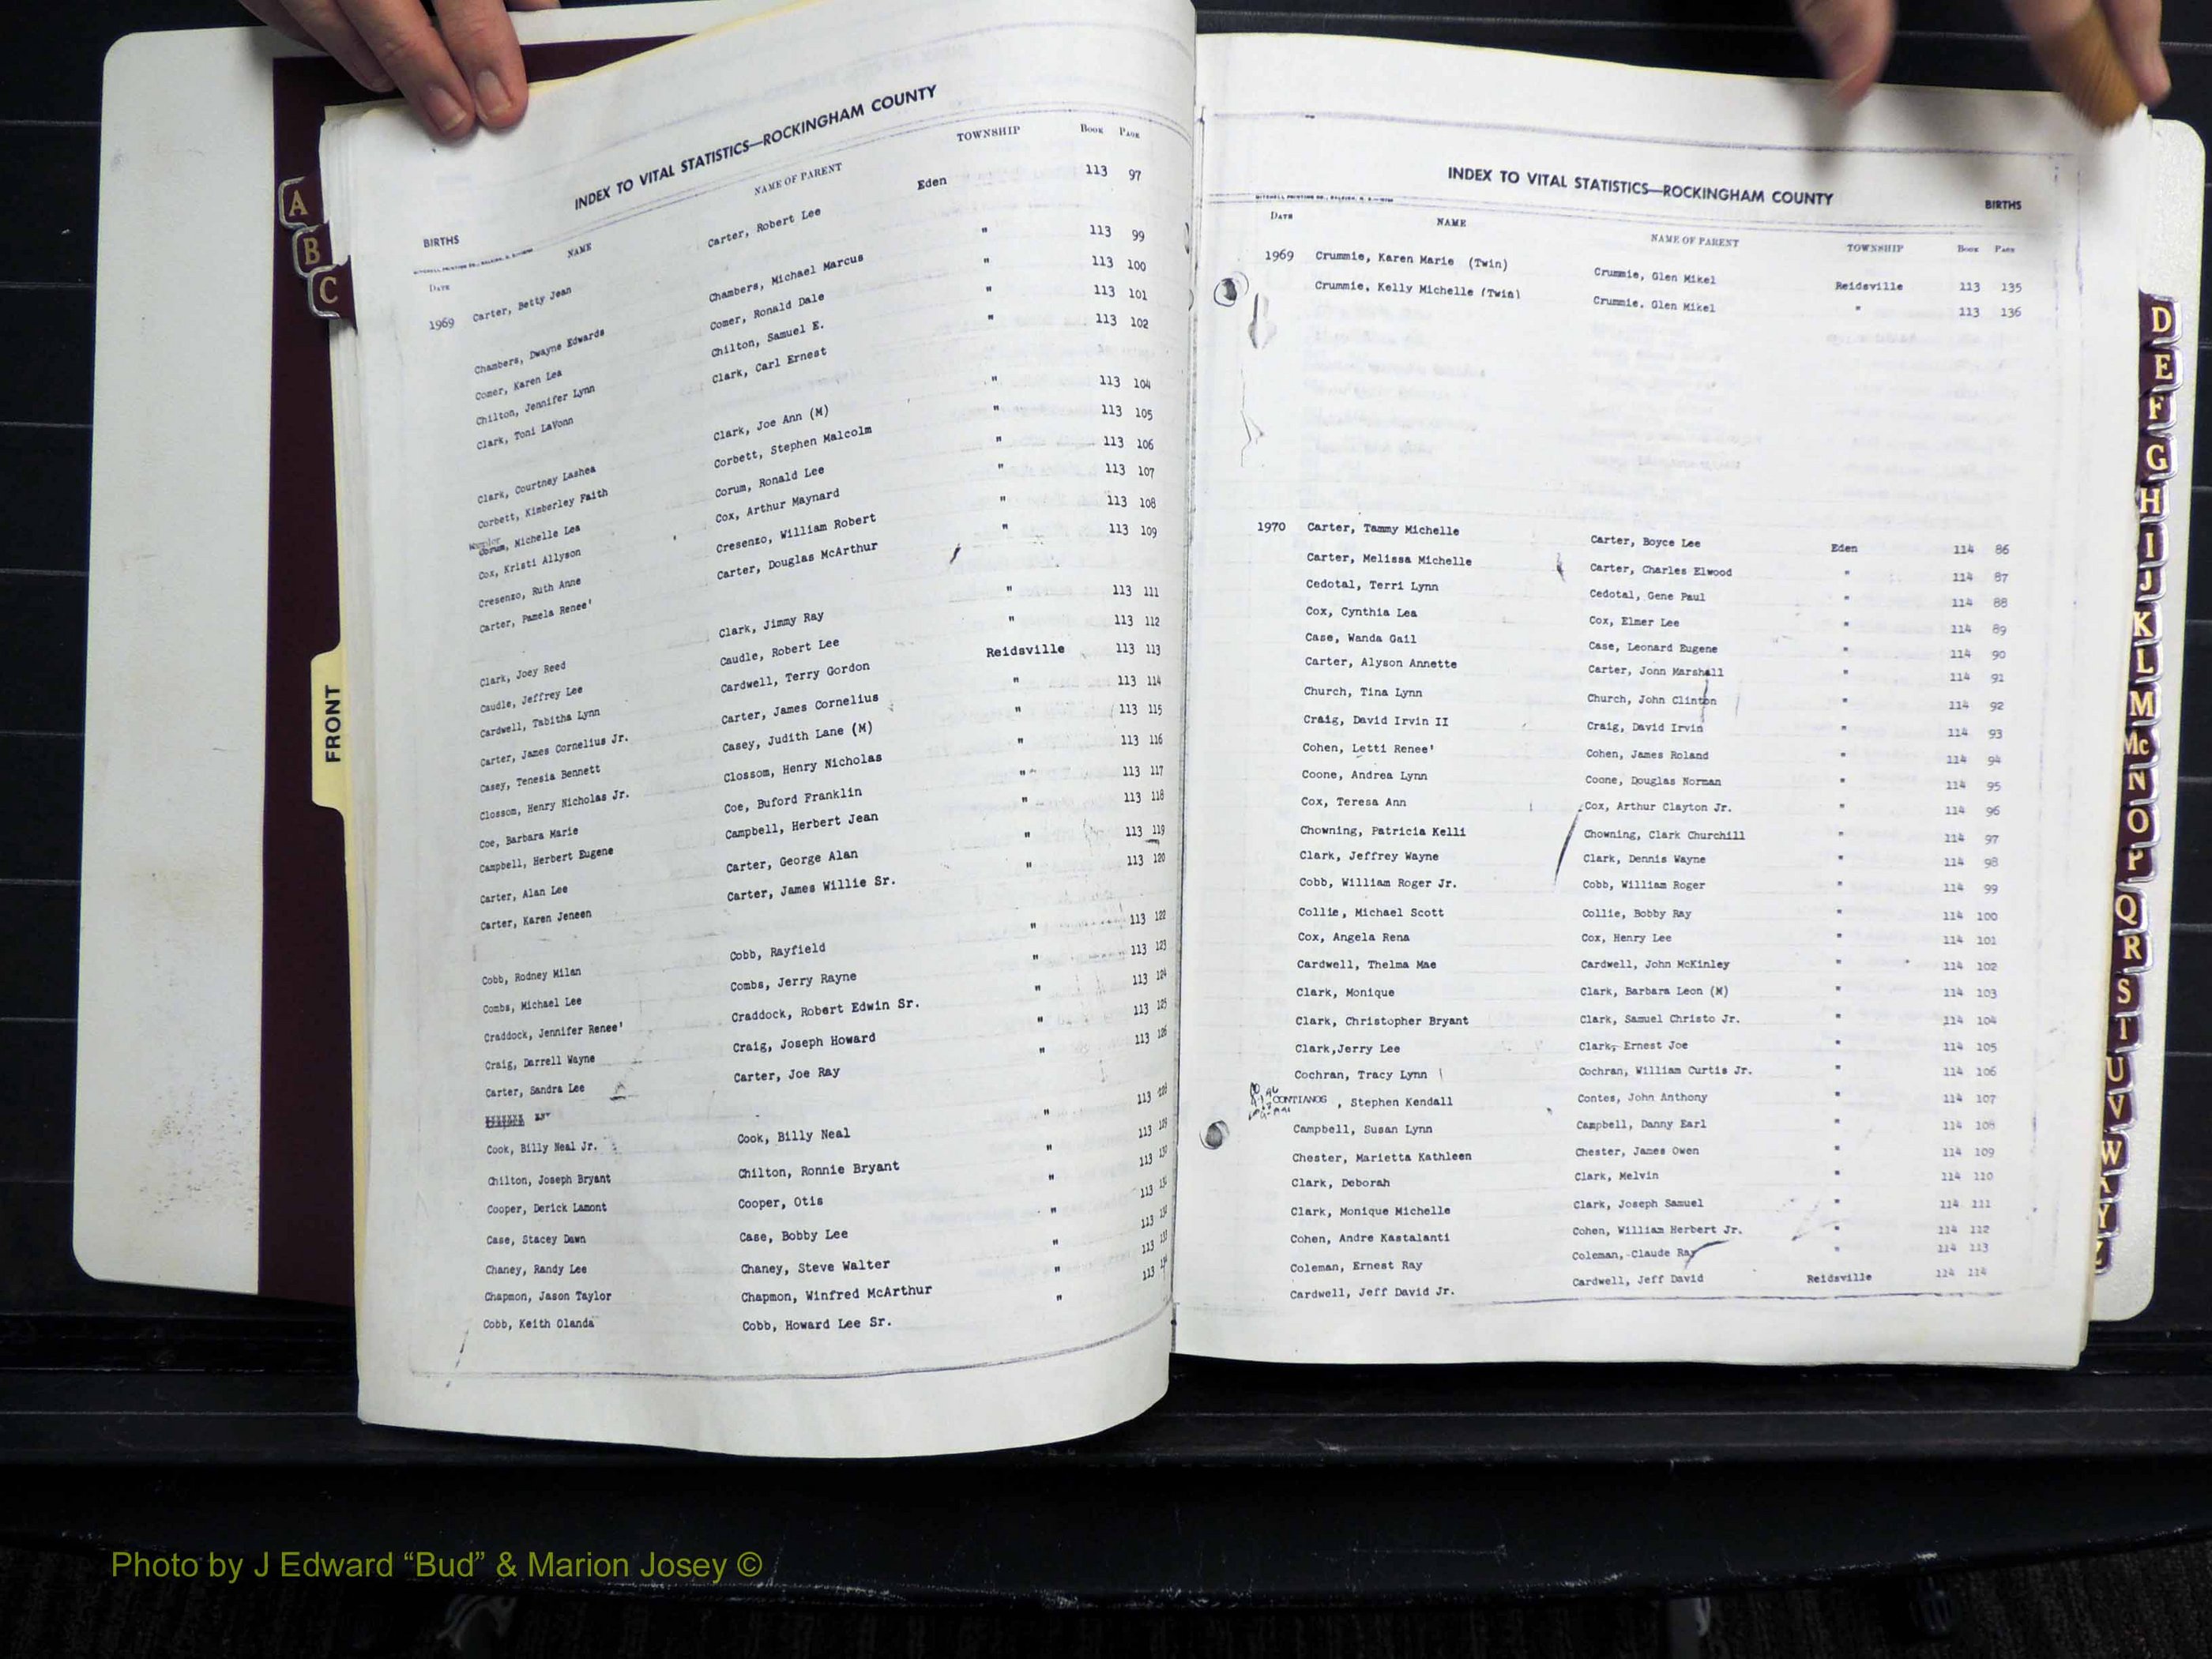 INDEX TO VITAL STATISTICS—ROCKINGHAM COUNTY
BIRTHS
DATE NAME NAME OF PARENT TOWNSHIP BOOK PAGE
1969 Carter, Betty Jean Carter, Robert Lee Eden 113 97
Chambers, Dwayne Edwards Chambers, Michael Marcus " 113 99
Comer, Karen Lea Comer, Ronald Dale " 113 100
Chilton, Jennifer Lynn Chilton, Samuel E. " 113 101
Clark, Toni LaVonn Clark, Carl Ernest " 113 102
Clark, Courtney Lashea Clark, Joe Ann (M) " 113 104
Corbett, Kimberley Faith Corbett, Stephen Malcolm " 113 105
Corum, Michelle Lea Corum, Ronald Lee " 113 106
Cox, Kristi Allyson Cox, Arthur Maynard " 113 107
Cresenzo, Ruth Anne Cresenzo, William Robert " 113 108
Carter, Pamela Renee' Carter, Douglas McArthur " 113 109
Clark, Joey Reed Clark, Jimmy Ray " 113 111
Caudle, Jeffrey Lee Caudle, Robert Lee " 113 112
Cardwell, Tabitha Lynn Cardwell, Terry Gordon Reidsville 113 113
Carter, James Cornelius Jr. Carter, James Cornelius " 113 114
Casey, Tenesia Bennett Casey, Judith Lane (M) " 113 115
Clossom, Henry Nicholas Jr. Clossom, Henry Nicholas " 113 116
Coe, Barbara Marie Coe, Buford Franklin " 113 117
Campbell, Herbert Eugene Campbell, Herbert Jean " 113 118
Carter, Alan Lee Carter, George Alan " 113 119
Carter, Karen Jeneen Carter, James Willie Sr. " 113 120
Cobb, Rodney Milan Cobb, Rayfield " 113 122
Combs, Michael Lee Combs, Jerry Rayne " 113 123
Craddock, Jennifer Renee' Craddock, Robert Edwin Sr. " 113 124
Craig, Darrell Wayne Craig, Joseph Howard " 113 125
Carter, Sandra Lee Carter, Joe Ray " 113 126
Cook, Billy Neal Jr. Cook, Billy Neal " 113
Chilton, Joseph Bryant Chilton, Ronnie Bryant " 113
Cooper, Derick Lamont Cooper, Otis " 113
Case, Stacey Dawn Case, Bobby Lee " 113
Chaney, Randy Lee Chaney, Steve Walter " 113
Chapmon, Jason Taylor Chapmon, Winfred McArthur " 113
Cobb, Keith Olanda Cobb, Howard Lee Sr. " 113
INDEX TO VITAL STATISTICS—ROCKINGHAM COUNTY
BIRTHS
DATE NAME NAME OF PARENT TOWNSHIP BOOK PAGE
1969 Crummie, Karen Marie (Twin) Crummie, Glen Mikel Reidsville 113 135
Crummie, Kelly Michelle (Twin) Crummie, Glen Mikel " 113 136
1970 Carter, Tammy Michelle Carter, Boyce Lee Eden 114 86
Carter, Melissa Michelle Carter, Charles Elwood " 114 87
Cedotal, Terri Lynn Cedotal, Gene Paul " 114 88
Cox, Cynthia Lea Cox, Elmer Lee " 114 89
Case, Wanda Gail Case, Leonard Eugene " 114 90
Carter, Alyson Annette Carter, Jonn Marshall " 114 91
Church, Tina Lynn Church, John Clinton " 114 92
Craig, David Irvin II Craig, David Irvin " 114 93
Cohen, Letti Renee' Cohen, James Roland " 114 94
Coone, Andrea Lynn Coone, Douglas Norman " 114 95
Cox, Teresa Ann Cox, Arthur Clayton Jr. " 114 96
Chowning, Patricia Kelli Chowning, Clark Churchill " 114 97
Clark, Jeffrey Wayne Clark, Dennis Wayne " 114 98
Cobb, William Roger Jr. Cobb, William Roger " 114 99
Collie, Michael Scott Collie, Bobby Ray " 114 100
Cox, Angela Rena Cox, Henry Lee " 114 101
Cardwell, Thelma Mae Cardwell, John McKinley " 114 102
Clark, Monique Clark, Barbara Leon (M) " 114 103
Clark, Christopher Bryant Clark, Samuel Christo Jr. " 114 104
Clark,Jerry Lee Clark, Ernest Joe " 114 105
Cochran, Tracy Lynn Cochran, William Curtis Jr. " 114 106
CONTIANOS , Stephen Kendall Contes, John Anthony " 114 107
Campbell, Susan Lynn Campbell, Danny Earl " 114 108
Chester, Marietta Kathleen Chester, James Owen " 114 109
Clark, Deborah Clark, Melvin " 114 110
Clark, Monique Michelle Clark, Joseph Samuel " 114 111
Cohen, Andre Kastalanti Cohen, William Herbert Jr. " 114 112
Coleman, Ernest Ray Coleman, Claude Ray " 114 113
Cardwell, Jeff David Jr. Cardwell, Jeff David Reidsville 114 114
A
B
C
FRONT
D
E
F
G
H
I
J
K
L
M
Mc
N
O
P
Q
R
S
T
U
V
W
Y
Z
Photo by J Edward “Bud” & Marion Josey ©